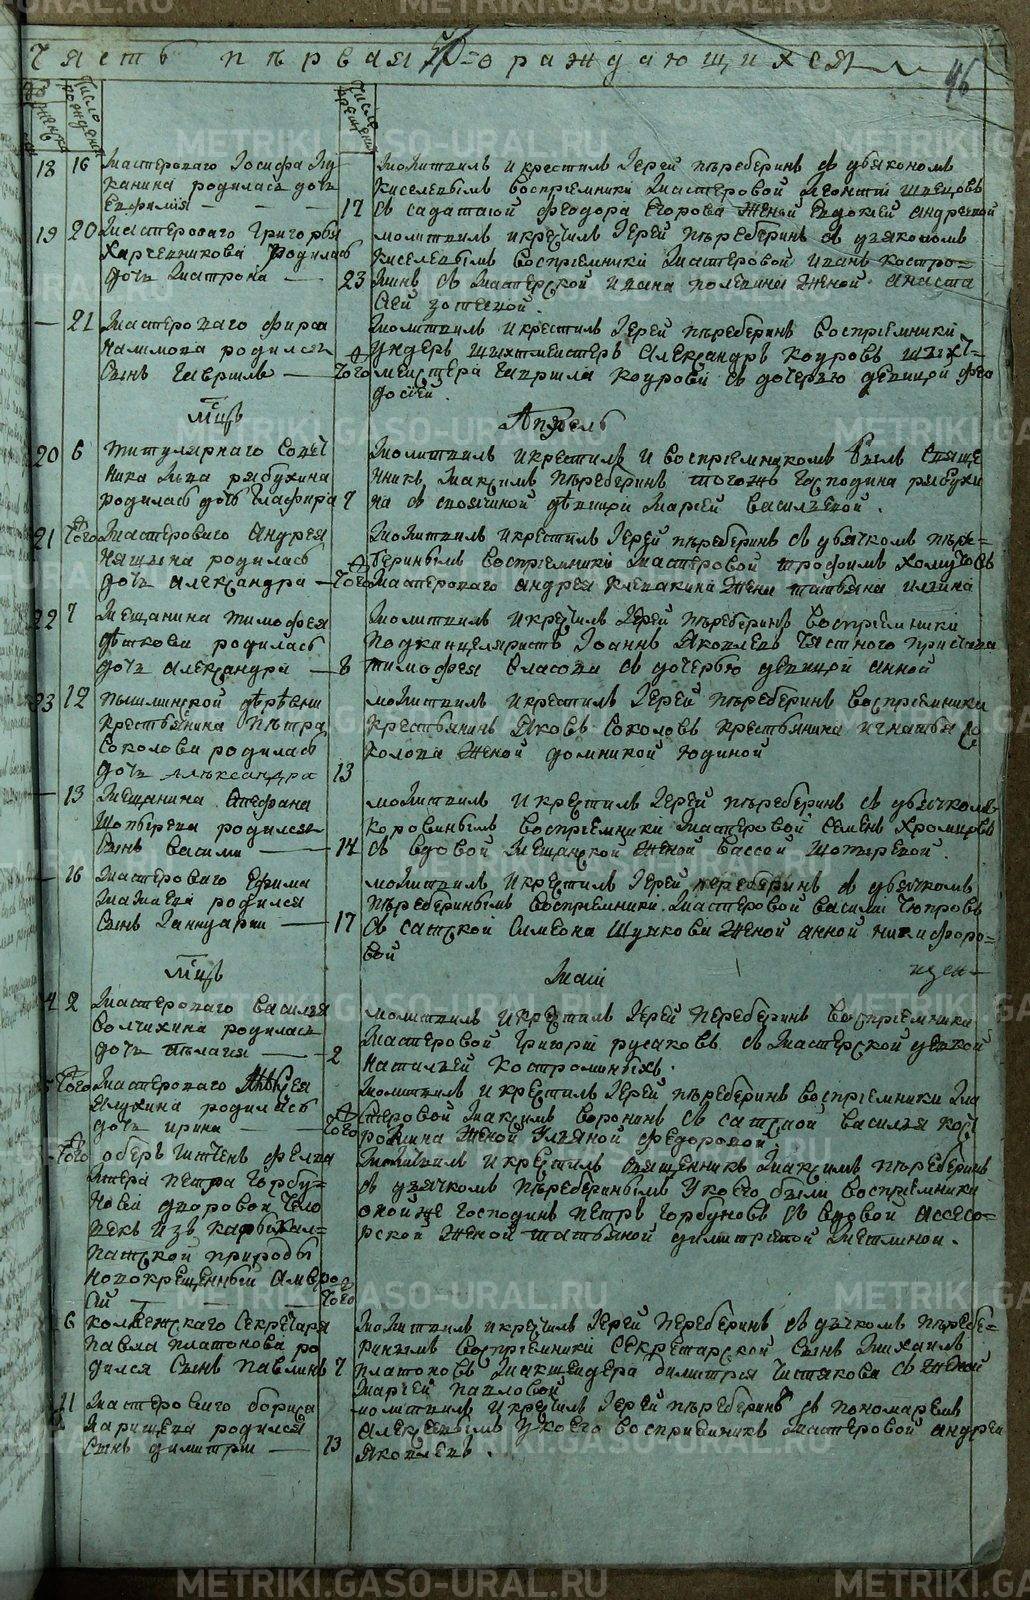 Часть первая о раждающихся
46
число рождения
число крещения
18 16 Мастероваго Иосифа Лу
канина родилась дочь
Евфимия 17
Молитвилъ и крестилъ Иерей перебёринъ съ дьякономъ
киселевымъ восприемники Мастеровой Леонтий Швецовъ
съ салдатскою Феодора Егорова женой Евдокией Андреевой
19 20 Мастероваго Григорья
Харчевникова родилась
дочь Матрона 23
молитвилъ и крестилъ Иерей перебёринъ съ дьякономъ
киселевымъ восприемники Мастеровой Иванъ костро-
минъ съ Мастерской Ивана полевина женой анаста
сией зотеевой.
21 Мастероваго Фирса
Налимова родился
сынъ Гаврилъ того
Молитвилъ и крестилъ Иерей перебёринъ восприемники
ундеръ шихтмейстеръ Александръ коуровъ шихт-
мейстера Гаврила коурова съ дочерью девицей фео
досией.
Мсцъ Апрель
20 6 титулярнаго Совет
ника Льва рябухина
родилась дочь Глафира 7
Молитвилъ и крестилъ и восприемникомъ былъ Свяще
нникъ Максимъ Перебёринъ тогожъ Господина рябухи
на съ своячиной девицей Марией Васильевой.
21 того Мастероваго Андрея
родилась
дочь Александра того
Молитвилъ крестилъ Иерей перебёринъ съ дьячкомъ пере-
беринымъ восприемники Мастеровой трофимъ Хомутовъ
Мастероваго андрея клепакина жена татьяна ильина
22 7 Мещанина тимофея
деткова родилась
дочь Александра 8
Молитвилъ и крестилъ Иерей перебёринъ восприемники
подканцеляристъ Иоаннъ Яковлевъ частного пристава
тимофея власова съ дочерью девицей анной
23 12 пышминской деревни
крестьянина Петра
Соколова родилась
дочь александра 13
молитвилъ и крестилъ Иерей перебёринъ восприемники
крестьянинъ Яковъ Соколовъ крестьянина игнатья Со
колова женой домникой юдиной
13 Мещанина Стефана
родился
сынъ василий 14
молитвилъ и крестилъ Иерей перебёринъ съ дьячкомъ
коровинымъ восприемники Мастеровой Семенъ Хромцовъ
съ вдовой Мещанской женой вассой
16 Мастероваго Ефима
Мамаева родился
сынъ Ианнуарий 17
молитвилъ и крестилъ Иерей перебёринъ съ дьячкомъ
перебёринымъ восприемники Мастеровой василий Чюпровъ
съ салдатской Симеона женой анной никифоро-
вой
Мсцъ Май
2 Мастероваго василья
волчихина родилась
дочь пелагия 2
молитвилъ и крестилъ Иерей перебёринъ восприемники
Мастеровой Григорий русаковъ съ Мастерской девкой
натальей костроминыхъ.
того Мастероваго Андрея
родилась
дочь ирина того
Молитвилъ и крестилъ Иерей перебёринъ восприемники Ма
стеровой Максимъ воронинъ съ василья
женой Ульяной Федоровой.
того оберъ Гиттенъ Фервал
тера петра горбу-
нова дворовой чело
векъ изъ
природы
новокрещенный Амвро
сий того
Молитвилъ и крестилъ священникъ Максимъ перебёринъ
съ дьячкомъ перебёринымъ у коего были восприемники
онойже господинъ петръ горбуновъ съ вдовой Ассесо-
рской женой татьяной димитриевой Метлиной.
6 коллежскаго секретаря
павла платонова ро
дился сынъ павлинъ 7
Молитвилъ и крестилъ Иерей перебёринъ съ дьячкомъ перебе-
ринымъ восприемники секретарской сынъ михаилъ
платоновъ Маркшейдера димитрия Чистякова съ женой
Марьей павловой
11 Мастероваго бориса
Ларищева родился
сынъ димитрий 13
молитвилъ и крестилъ Иерей перебёринъ съ пономаремъ
алексеевымъ у коего восприемникъ Мастеровой андрей
яковлевъ.